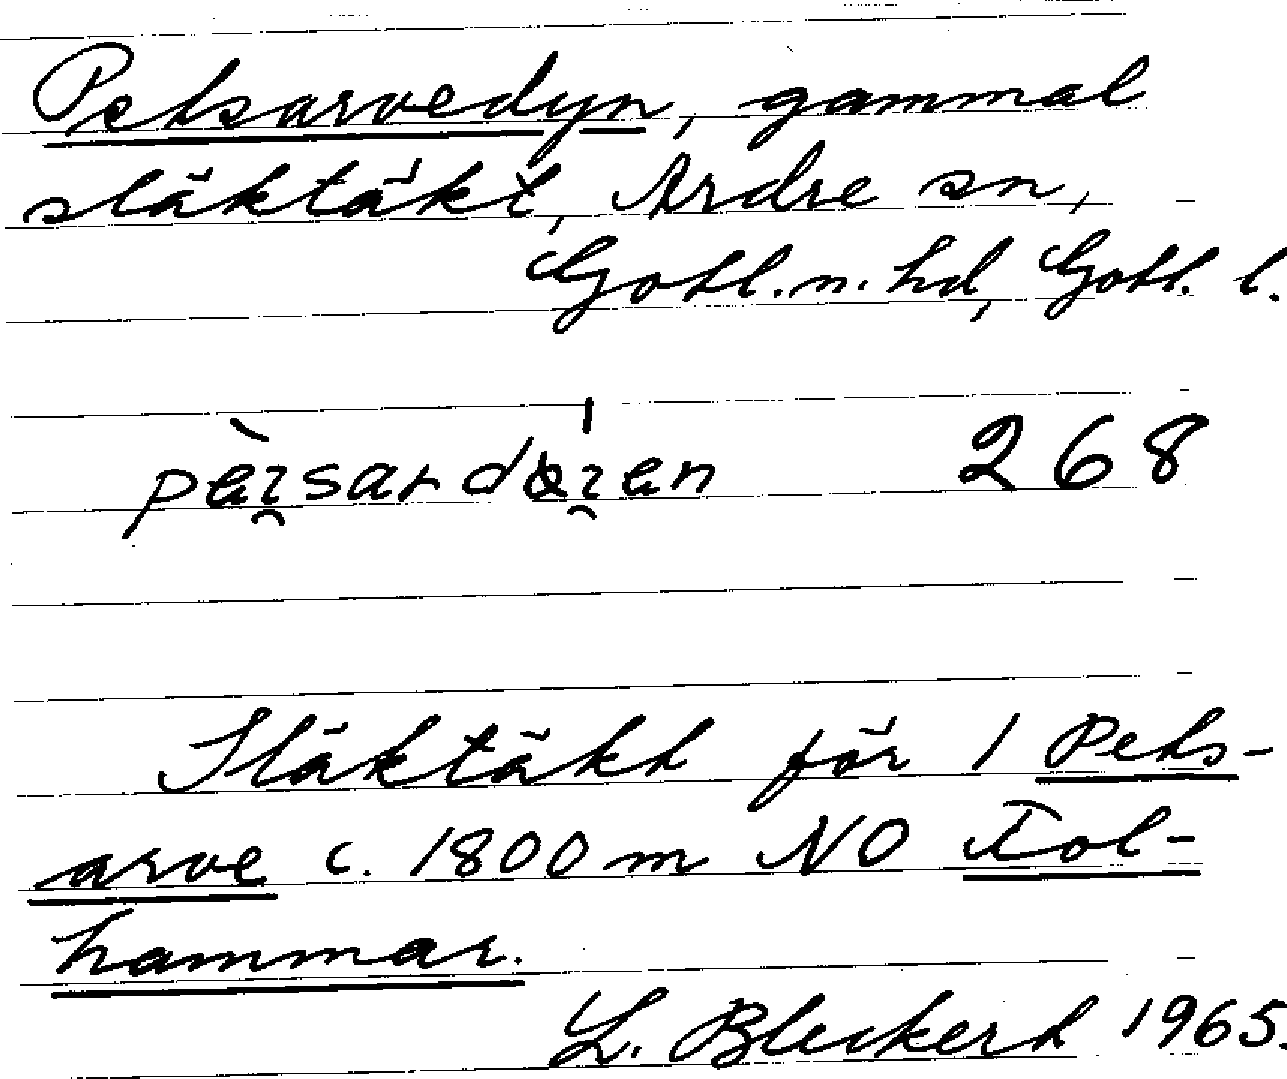 Petsarvedyn, gammal
släktäkt, Ardre sn,
Gotl. n. hd, Gotl. l.
268
Släktäkt för 1 Pets-
arve c. 1800 m NO Tol-
hammar.
L. Bleckert 1965.